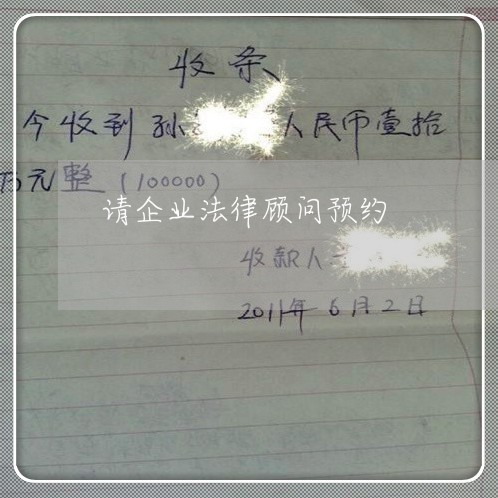 收条
今收到孙 人民币壹拾
万元整(100000)
请企业法律顾问预约
收款人
2011年6月2日